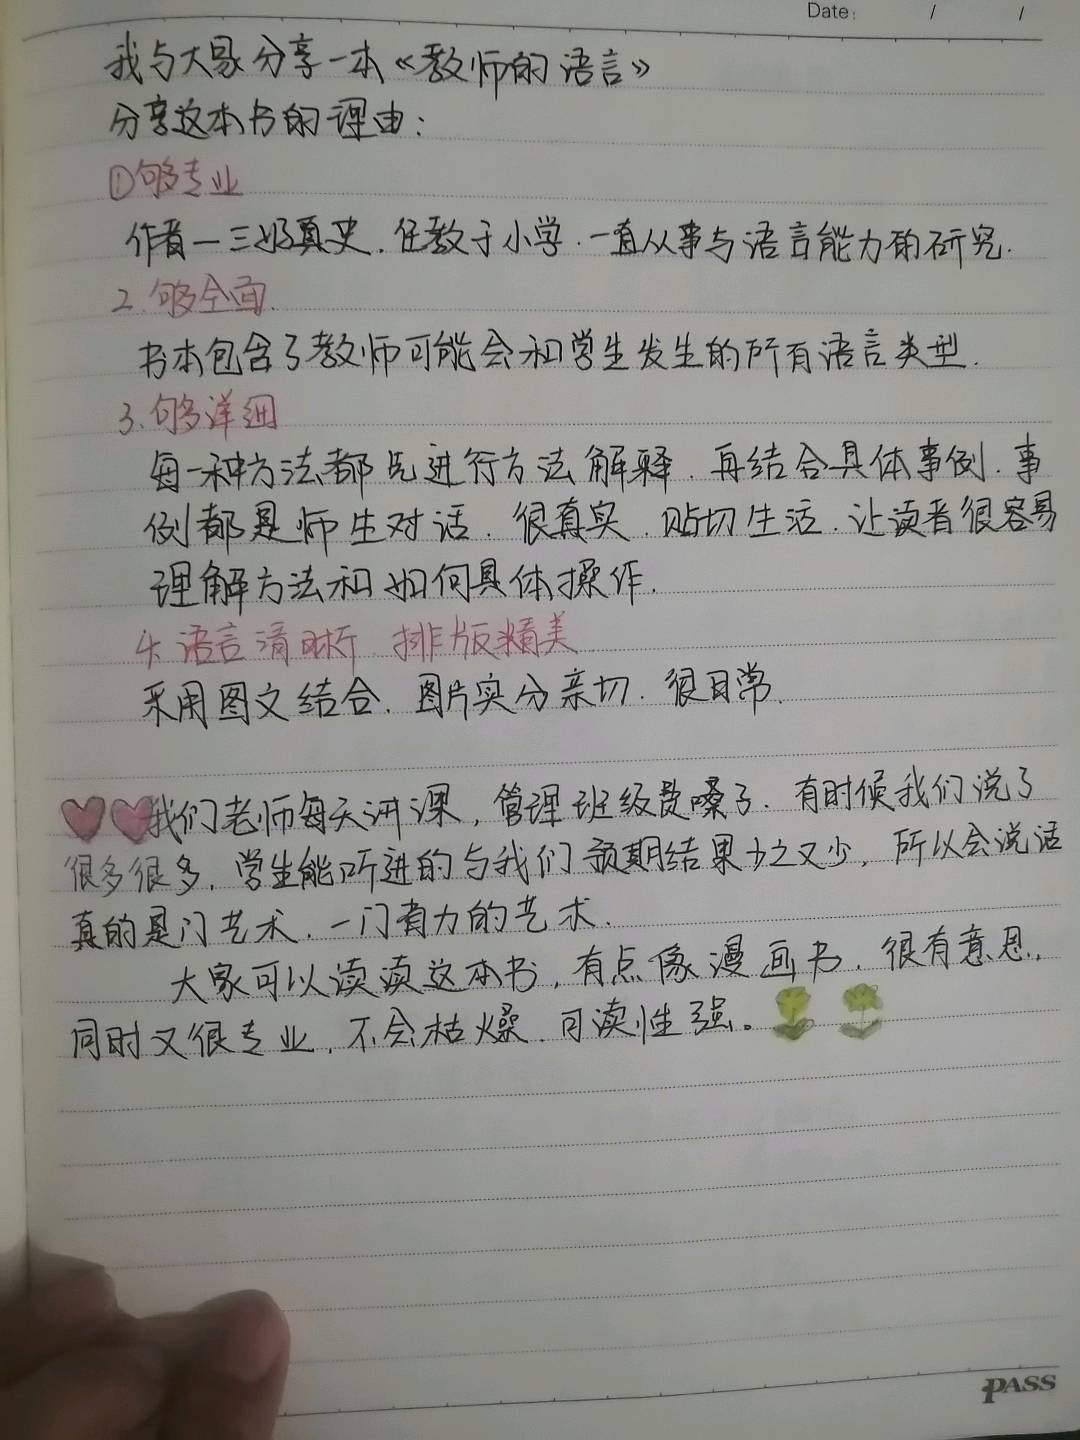 Date: / /
我与大家分享一本《教师的语言》
分享这本书的理由:
①够专业
作者一三好真史.任教于小学.一直从事与语言能力的研究.
2.够全面.
书本包含了教师可能会和学生发生的所有语言类型.
3.够详细
每一种方法都先进行方法解释.再结合具体事例.事
例都是师生对话.很真实.贴切生活.让读者很容易
理解方法和如何具体操作.
4.语言清晰.排版精美
采用图文结合.图片实分亲切.很日常.
我们老师每天讲课,管理班级费嗓子.有时候我们说了
很多很多.学生能听进的与我们预期结果少之又少,所以会说话
真的是门艺术.一门有力的艺术.
大家可以读读这本书,有点像漫画书.很有意思.
同时又很专业.不会枯燥.可读性强。
PASS